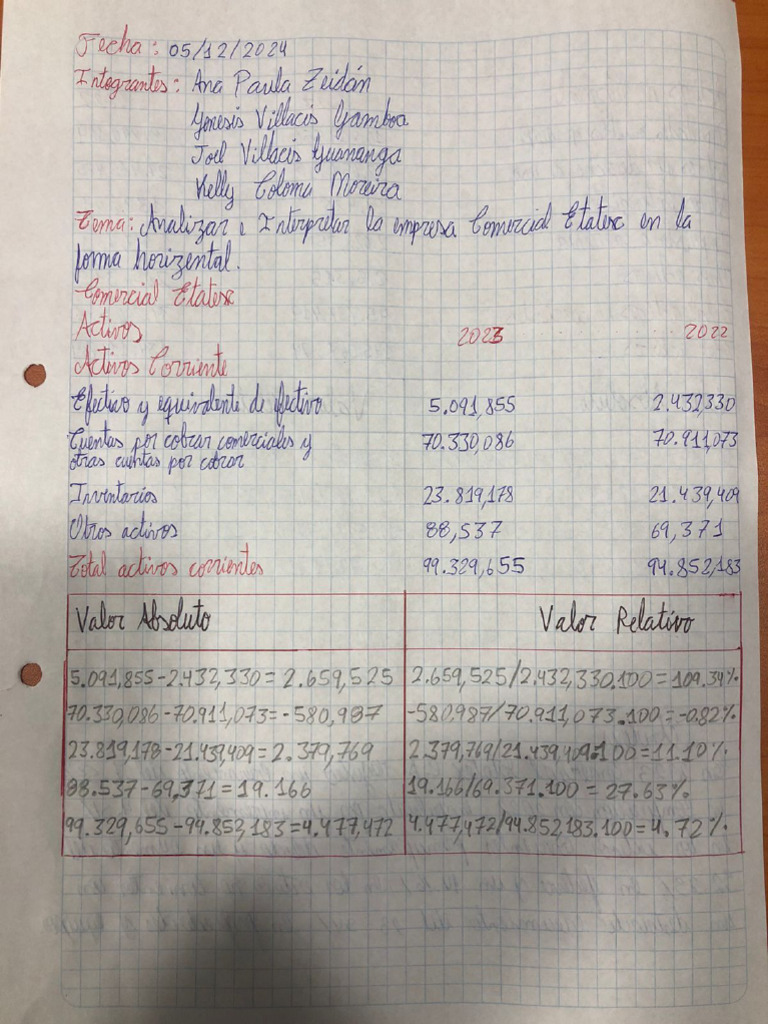 Fecha: 05/12/2024
Integrantes: Ana Paula Zeidán
Genesis Villacis Gamboa
Joel Villacis Guananga
Kelly Coloma Moreira
Tema: Analizar e Interpretar la empresa Comercial Etatex en la
forma horizental.
Comercial Etatex
Activos 2023 2022
Activos Corriente
Efectivo y equivalente de efectivo 5.091,855 2.432,330
Cuentas por cobrar comerciales y 70.330,086 70.911,073
otras cuentas por cobrar
Inventarios 23.819,178 21.439,409
Otros activos 88,537 69,371
Total activos corrientes 99.329,655 94.852,183
Valor Absoluto Valor Relativo
5.091,855-2.432,330= 2.659,525 2.659,525/2.432,330.100=109.34%
70.330,086-70.911,073=-580,987 -580.987/70.911,073.100=-0.82%
23.819,178-21.439,409=2.379,769 2.379,769/21.439,409.100=11.10%
88.537-69,371=19.166 19.166/69.371.100=27.63%
99.329,655-94.852,183=4.477,472 4.477,472/94.852,183.100=4.72%